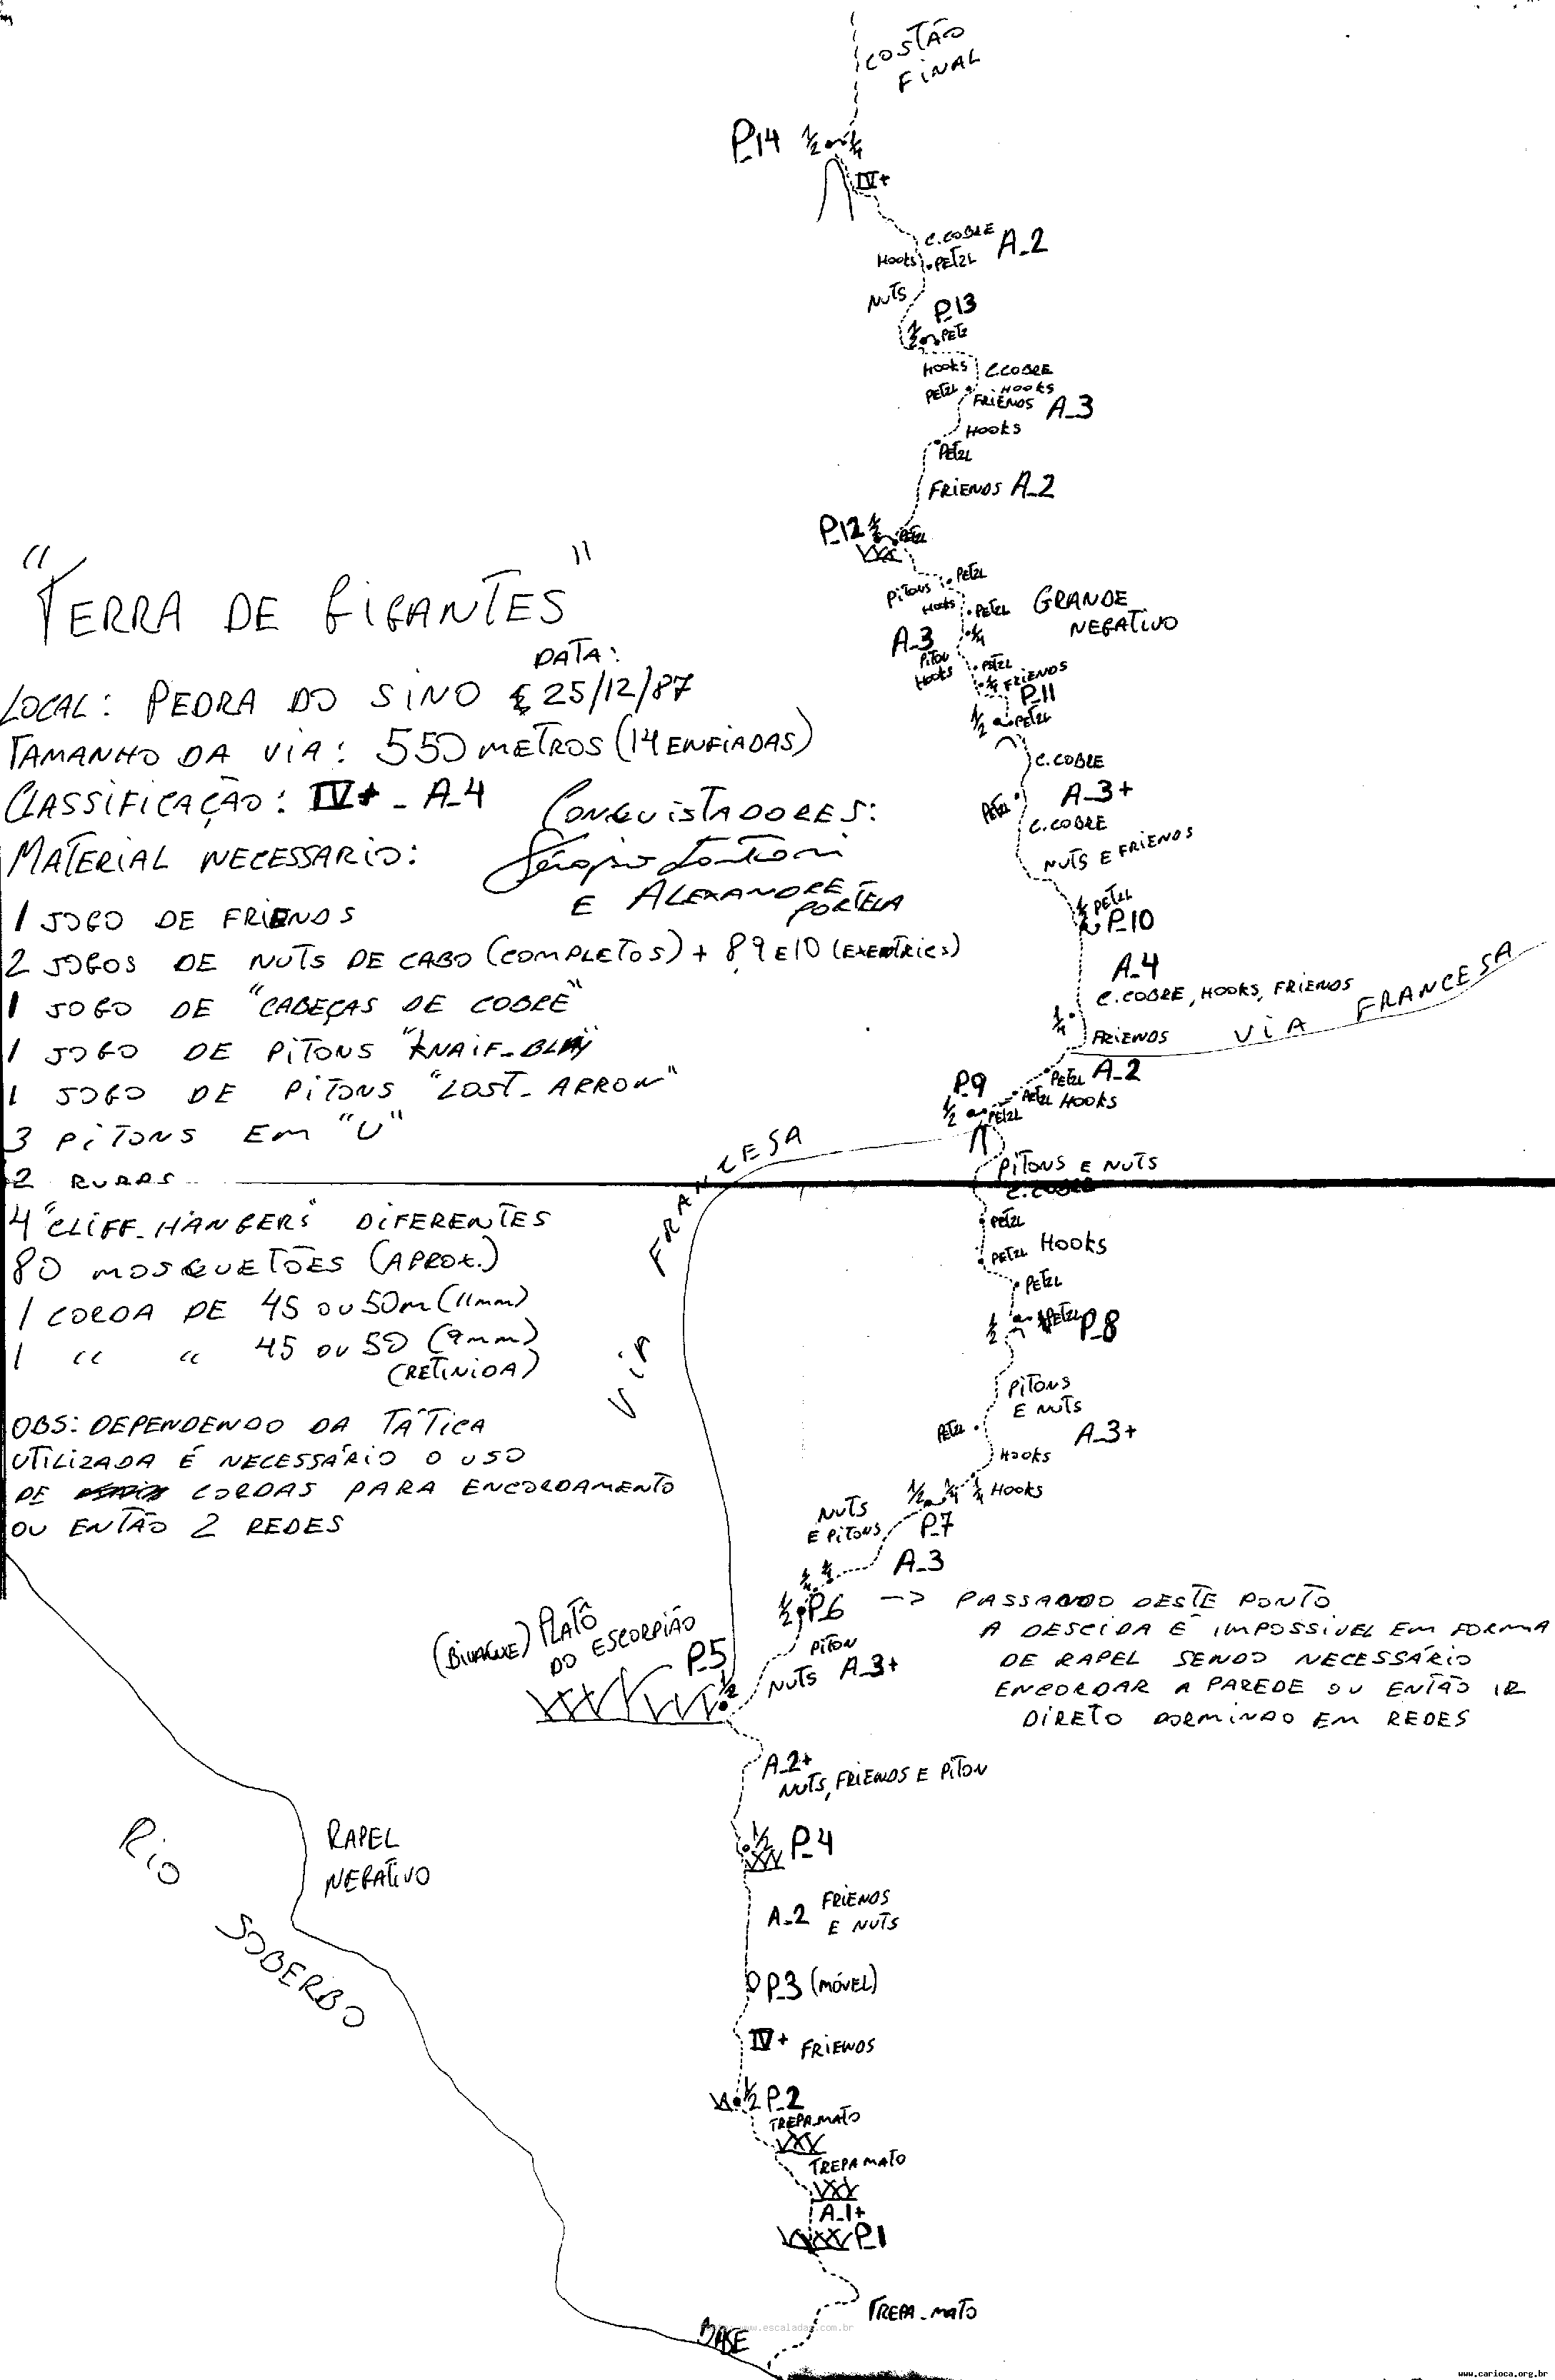 COSTÃO
FINAL
P_14 ½ ¼
IV+
C.COBRE A_2
HOOKS PETZL
NUTS
P_13
½ PETZ
HOOKS C.COBRE
PETZL HOOKS
FRIENDS A_3
HOOKS
PETZL
FRIENDS A_2
P_12 ½ PETZL
PITONS PETZL
HOOKS PETZL GRANDE
NEGATIVO
A_3 ¼
PITON
HOOKS PETZL
¼ FRIENDS
P_11
½ PETZL
C.COBRE
PETZL A_3+
C.COBRE
NUTS E FRIENDS
½ PETZL
P_10
A_4
C.COBRE, HOOKS, FRIENDS
¼
FRIENDS
VIA FRANCESA
PETZL A_2
P_9
PETZL HOOKS
½ PETZL
PITONS E NUTS
C.COBRE
PETZL
PETZL HOOKS
PETZL
½ PETZL P_8
PITONS
E NUTS
PETZL A_3+
HOOKS
½ ¼ ¼ HOOKS
P_7
NUTS
E PITONS
A_3
¼ ¼
½ P_6 -> PASSANDO DESTE PONTO
A DESCIDA É IMPOSSIVEL EM FORMA
DE RAPEL SENDO NECESSÁRIO
ENCORDAR A PAREDE OU ENTÃO IR
DIRETO DORMINDO EM REDES
PITON
NUTS A_3+
(BIVAQUE) PLATÔ
DO ESCORPIÃO
P_5
½
A_2+
NUTS, FRIENDS E PITON
½ P_4
A_2 FRIENDS
E NUTS
P_3 (MÓVEL)
IV+ FRIENDS
½ P_2
TREPA_MATO
TREPA MATO
A_1+
P_1
TREPA_MATO
BASE
"TERRA DE GIGANTES"
DATA:
LOCAL: PEDRA DO SINO 25/12/87
TAMANHO DA VIA: 550 METROS (14 ENFIADAS)
CLASSIFICAÇÃO: IV+ _ A_4
CONQUISTADORES:
E ALEXANDRE
PORTELA
MATERIAL NECESSARIO:
1 JOGO DE FRIENDS
2 JOGOS DE NUTS DE CABO (COMPLETOS) + 8,9 E 10 (EXENTRICS)
1 JOGO DE "CABEÇAS DE COBRE"
1 JOGO DE PITONS "KNAIF_BLAY"
1 JOGO DE PITONS "LOST_ARROW"
3 PITONS EM "U"
2 RURPS
4 "CLIFF_HANGERS" DIFERENTES
80 MOSQUETÕES (APROX.)
1 CORDA DE 45 OU 50m (11mm)
1 " " 45 OU 50 (9mm)
(RETINIDA)
OBS: DEPENDENDO DA TÁTICA
UTILIZADA É NECESSÁRIO O USO
DE CORDAS PARA ENCORDAMENTO
OU ENTÃO 2 REDES
VIA FRANCESA
RAPEL
NEGATIVO
RIO SOBERBO
www.escaladas.com.br
www.carioca.org.br